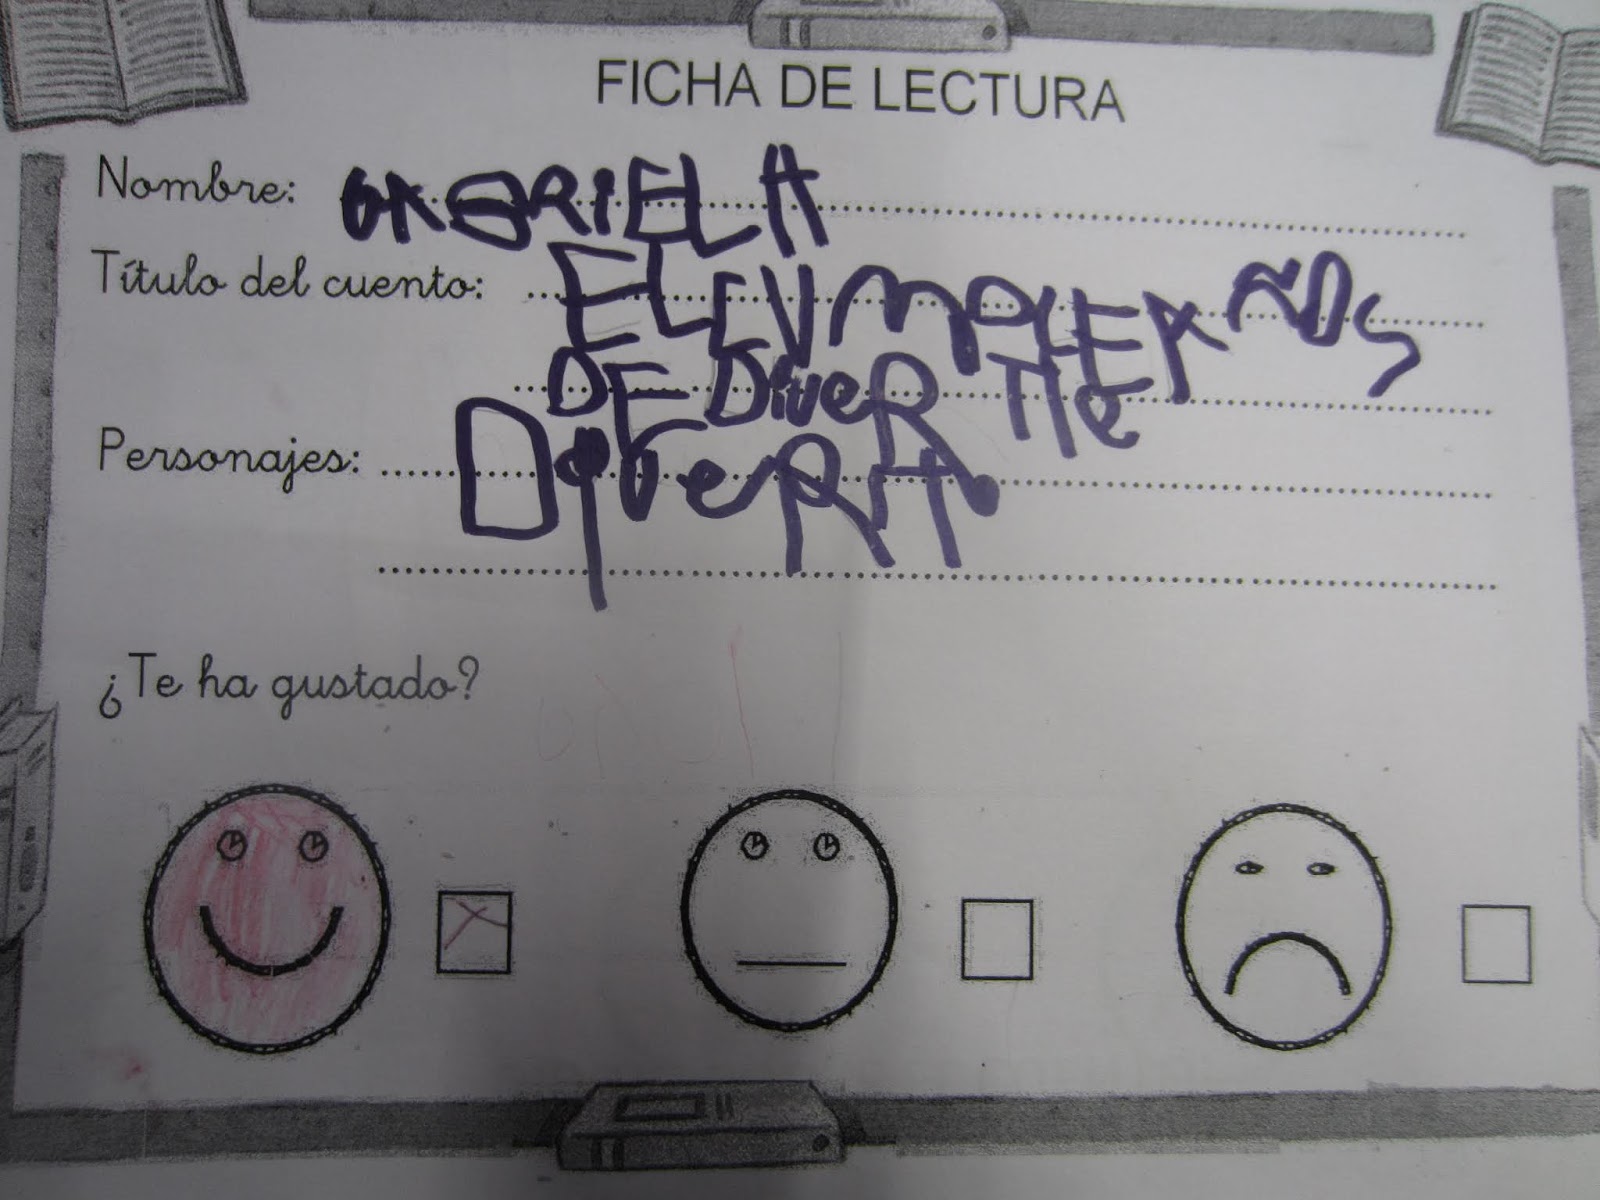 FICHA DE LECTURA
Nombre: GABRIELA
Título del cuento: EL CUMPLEAÑOS
DE DiveRTIe
Personajes: DiveRTi
¿Te ha gustado?